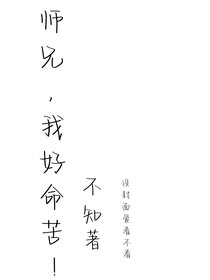 师兄，我好命苦！
不知著
没封面爱看不看